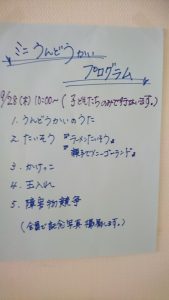 ミニうんどうかい
プログラム
9/28(木) 10:00~(子どもたちのみで行ないます。)
1. うんどうかいのうた
2. たいそう 『ラーメンたいそう』
『親子でソニーゴーランド』
3. かけっこ
4. 玉入れ
5. 障害物競争
(全員で記念写真撮影します。)